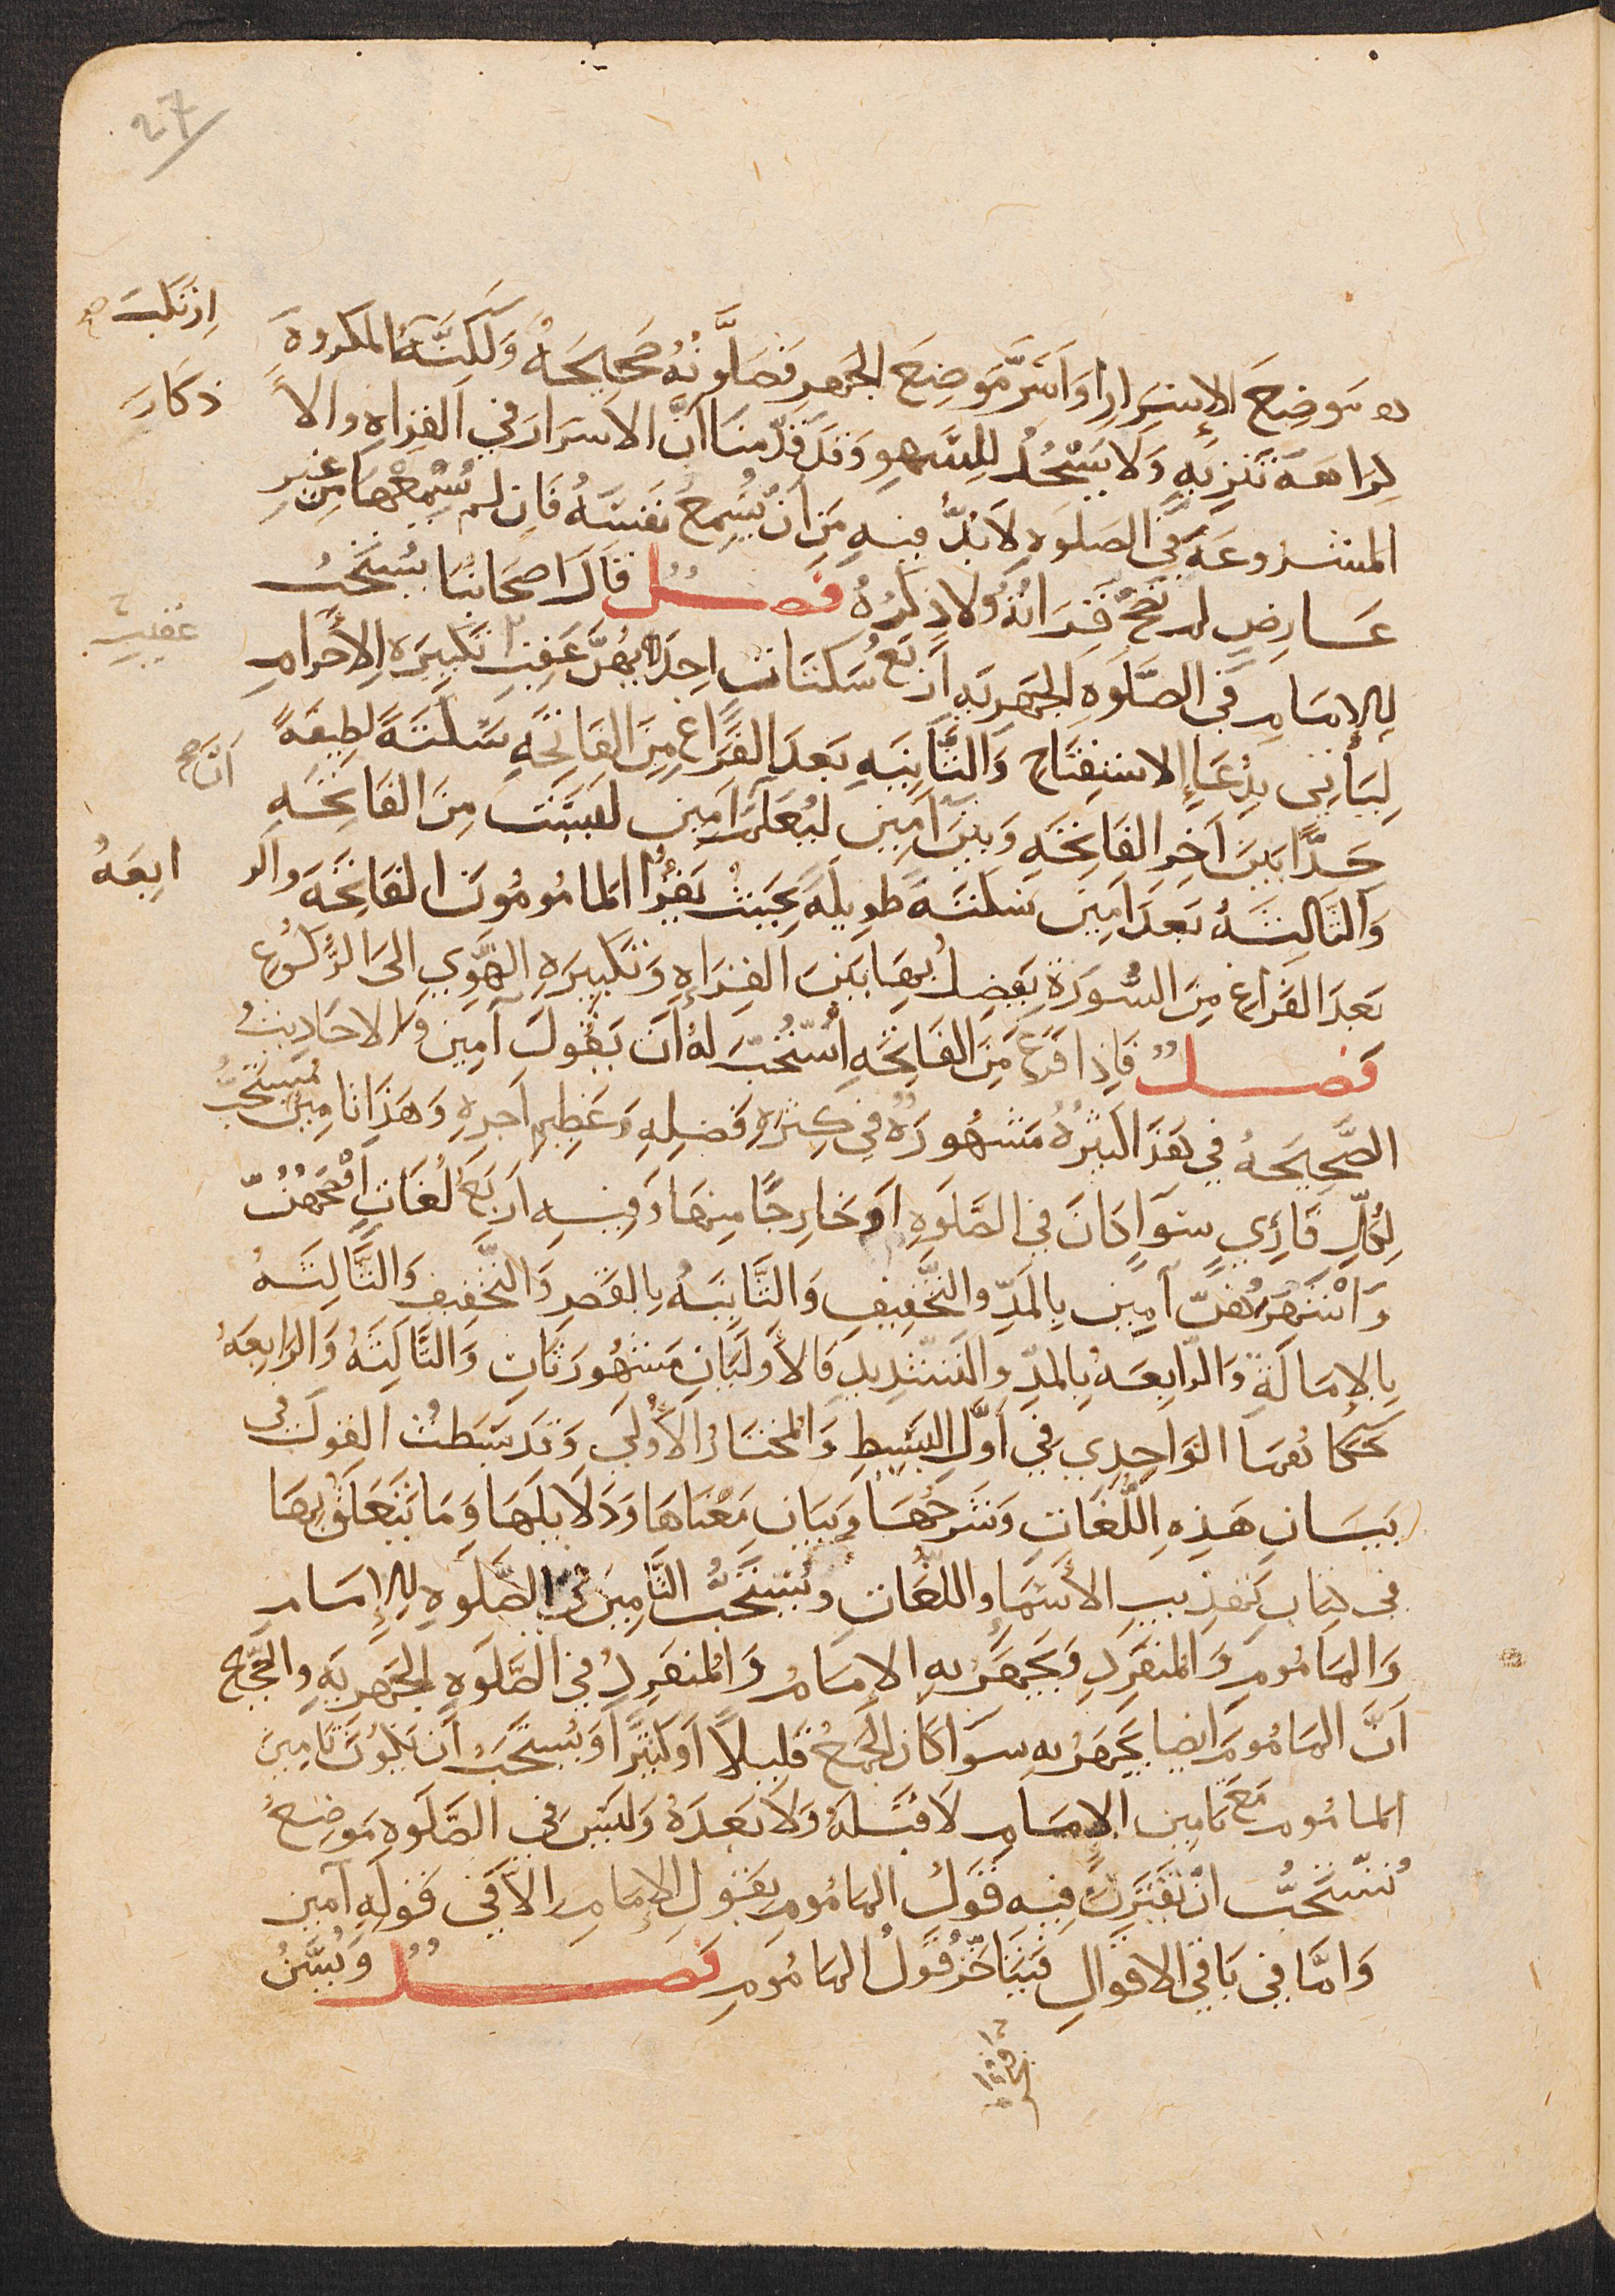 27
موضع الإسرار او اسر موضع الجهر فصلوته صحيحة ولكنه ارتكب المكروه
كراهة تنزيه ولا يسجد للسهو وقد قدمنا ان الاسرار في القراه والاذكار
المشروعة في الصلوه لا بد فيه من ان يسمع نفسه فان لم يسمعها من غير
عارض لم تصح قراته ولا ذكره فصل قال اصحابنا يستحب
للإمام في الصلوه الجهريه اربع سكتات احداهن عقيب تكبيره الإحرام
عقيب
ليأتي بدعاء الاستفتاح والثانيه بعد الفراغ من الفاتحه سكتة لطيفة
جدا بين اخر الفاتحه وبين آمين ليعلم ان آمين ليست من الفاتحه
والثالثه بعد آمين سكتة طويلة بحيث يقرأ المامومون الفاتحه والرابعه
بعد الفراغ من السورة يفصل بها بين القراءه وتكبيره الهوي الى الركوع
فصل فاذا فرغ من الفاتحه استحب له ان يقول آمين والاحاديث
الصحيحه في هذا كثيره مشهورة في كثره فضله وعظيم اجره وهذا التامين مستحب
لكل قارئ سوآ كان في الصلوه او خارجا منها وفيه اربع لغات افصحهن
واشهرهن آمين بالمد والتخفيف والثانيه بالقصر والتخفيف والثالثه
بالإمالة والرابعه بالمد والتشديد فالأوليان مشهورتان والثالثه والرابعه
حكاهما الواحدي في اول البسيط والمختار الأولى وقد بسطت القول في
بيان هذه اللغات وشرحها وبيان معناها ودلايلها وما يتعلق بها
في كتاب تهذيب الأسما واللغات ويستحب التامين في الصلوه للإمام
والماموم والمنفرد ويجهر به الامام والمنفرد في الصلوه الجهريه والصحيح
ان الماموم ايضا يجهر به سوا كان الجمع قليلا او كثيرا ويستحب ان يكون تامين
الماموم مع تامين الإمام لا قبله ولا بعده وليس في الصلوه موضع
يستحب ان يقترن فيه قول الماموم بقول الإمام الا في قوله آمين
واما في باقي الاقوال فيتاخر قول الماموم فصل ويسن